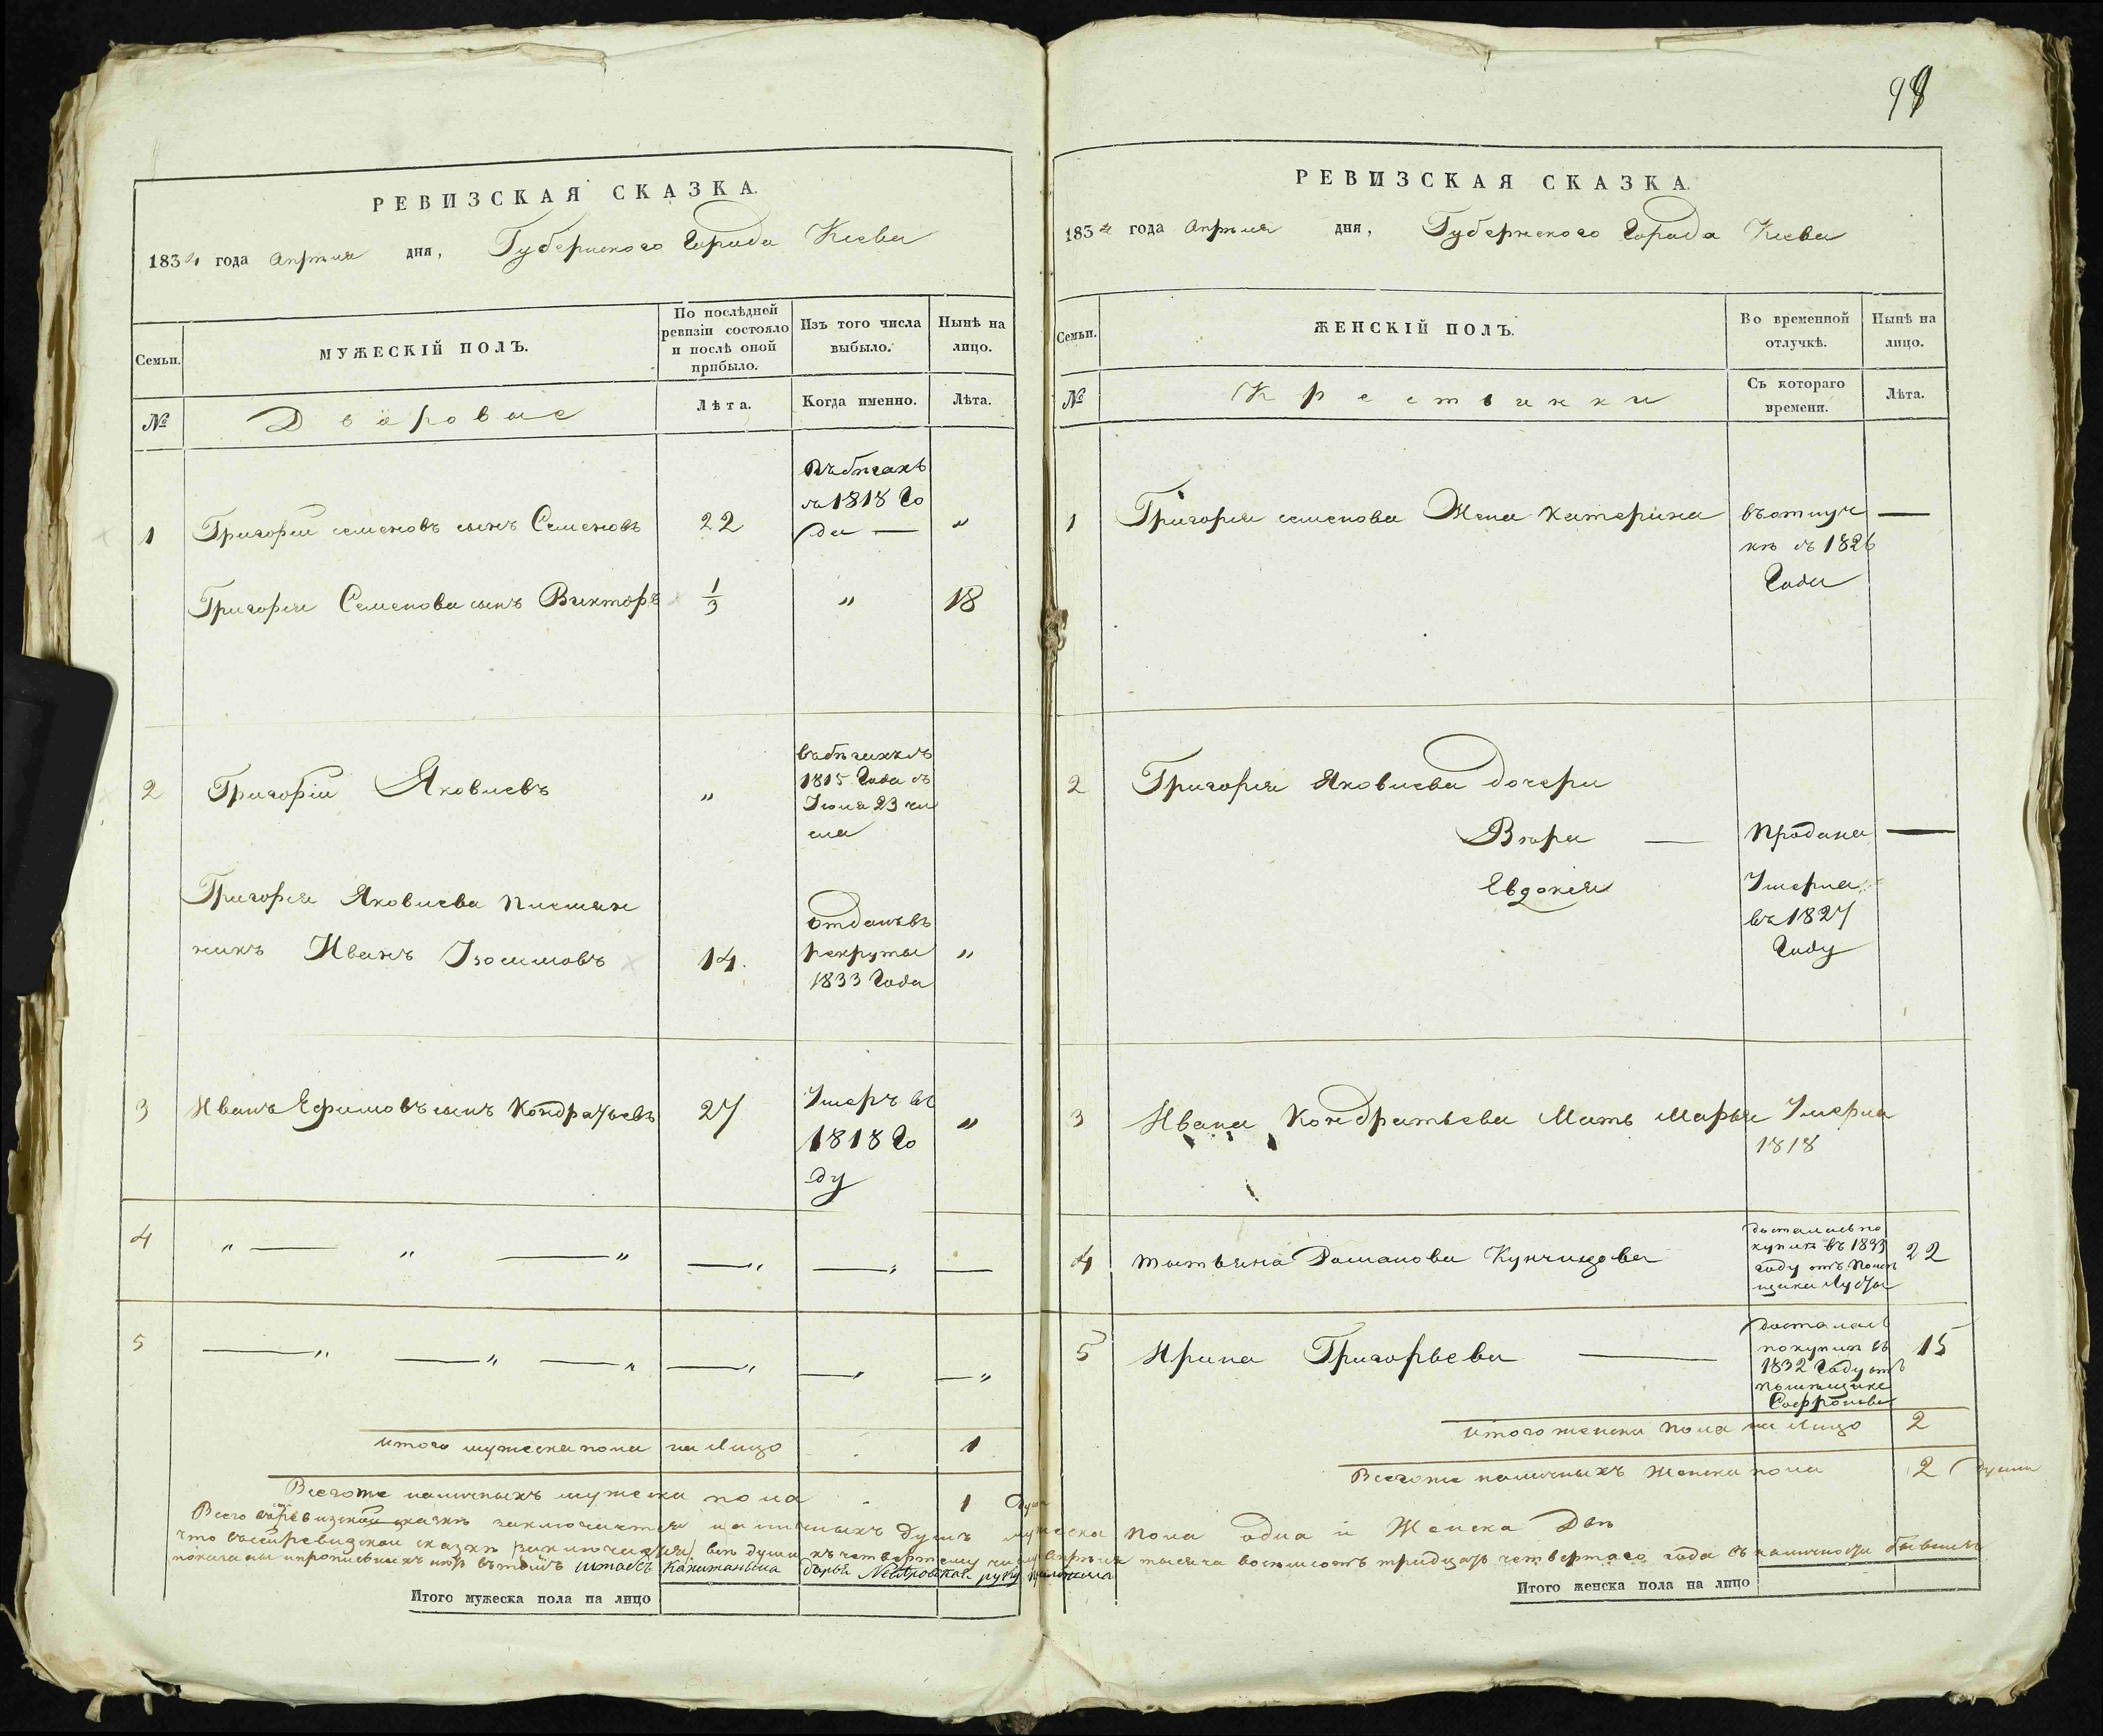 98
РЕВИЗСКАЯ СКАЗКА.
1834 года Апреля дня, Губернского Города Киева
Семьи.
МУЖЕСКІЙ ПОЛЪ.
По послѣдней ревизіи состояло и послѣ оной прибыло.
Изъ того числа выбыло.
Нынѣ на лицо.
№
Дворовые
Лѣта.
Когда именно.
Лѣта.
1 Григорій семеновъ сынъ Семеновъ 22
въбѣгахъ
съ 1818 Го
да — "
Григорія Семенова сынъ Викторъ 1/3 " 18
2 Григорій Яковлевъ "
въбѣгахъ съ
1815 Года съ
Іюля 23 чи
сла
Григорія Яковлева племян
никъ Иванъ Изосимовъ 14.
отданъ въ
рекруты "
1833 Года
3 Иванъ Ефимовъ сынъ Кондратьевъ 27
Умеръ въ
1818 Го "
ду
4 " — " — " — " — " —
5 — " — " — " — " — " — "
итого мужеска пола на Лицо 1
Всегоже наличныхъ мужеска пола 1 душа
РЕВИЗСКАЯ СКАЗКА.
1834 года Апреля дня, Губернского Города Киева
Семьи.
ЖЕНСКІЙ ПОЛЪ.
Во временной отлучкѣ.
Нынѣ на лицо.
№
Крестьянки
Съ котораго времени.
Лѣта.
1 Григорія семенова Жена Катерина
въ отлуч —
кѣ съ 1826
Года
2 Григорія Яковлева дочери
Вѣра — Продана —
Евдокія Умерла
въ 1827
Году
3 Ивана Кондратьева Мать Марья Умерла
1818
4 Татьяна Романова
досталась по
купкѣ въ 1833 22
году отъ помѣ
щика
5 Ирина Григорьева —
досталась
покупкѣ въ 15
1832 Году отъ
помѣщика
Софронова
итого женска пола на Лицо 2
Всегоже наличныхъ женска пола 2 души
Всего въ ревизской сказкѣ заключается наличныхъ душъ мужеска пола одна и Женска Двѣ
что въ сей ревизской сказкѣ заключающіяся всѣ души къ четвертому числу Апреля тысяча восемьсотъ тридцать четвертаго года въ наличности бывшія
показаны и прописныхъ нѣтъ въ томъ штабсъ Капитанша Дарья руку приложила
Итого мужеска пола на лицо
Итого женска пола на лицо